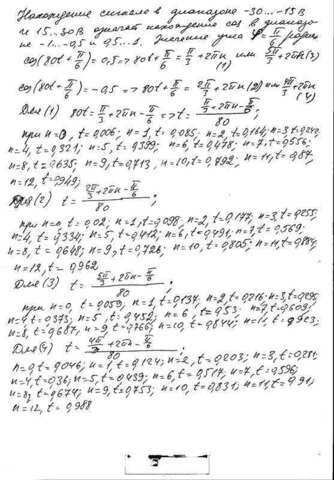 Нахождение сигнала в диапазоне -30...-15 В
и 15...30 В означает нахождение cos в диапазо-
не -1...-0,5 и 0,5...1. Значение угла φ = π/6 радиан
cos(80t+π/6)=0,5 => 80t+π/6 = π/3+2πn (1) или 5π/3+2πn (3)
cos(80t+π/6)=-0,5 => 80t+π/6 = 2π/3+2πn (2) или 4π/3+2πn (4)
Для (1) 80t = π/3+2πn-π/6 => t = (π/3+2πn-π/6)/80;
при n=0, t=0,006; n=1, t=0,085; n=2, t=0,164; n=3, t=0,242
n=4, t=0,321; n=5, t=0,399; n=6, t=0,478; n=7, t=0,556;
n=8, t=0,635; n=9, t=0,713; n=10, t=0,792; n=11, t=0,87;
n=12, t=0,949;
Для (2) t = (2π/3+2πn-π/6)/80;
при n=0, t=0,02; n=1, t=0,098; n=2, t=0,177; n=3, t=0,255;
n=4, t=0,334; n=5, t=0,412; n=6, t=0,491; n=7, t=0,569;
n=8, t=0,648; n=9, t=0,726; n=10, t=0,805; n=11, t=0,884
n=12, t=0,962
Для (3) t = (5π/3+2πn-π/6)/80;
при n=0, t=0,059; n=1, t=0,137; n=2, t=0,216; n=3, t=0,295
n=4, t=0,373; n=5, t=0,452; n=6, t=0,53; n=7, t=0,609;
n=8, t=0,687; n=9, t=0,766; n=10, t=0,844; n=11, t=0,923;
Для (4) t = (4π/3+2πn-π/6)/80;
n=0, t=0,046; n=1, t=0,124; n=2, t=0,203; n=3, t=0,281
n=4, t=0,36; n=5, t=0,439; n=6, t=0,517; n=7, t=0,596;
n=8, t=0,674; n=9, t=0,753; n=10, t=0,831; n=11, t=0,91;
n=12, t=0,988